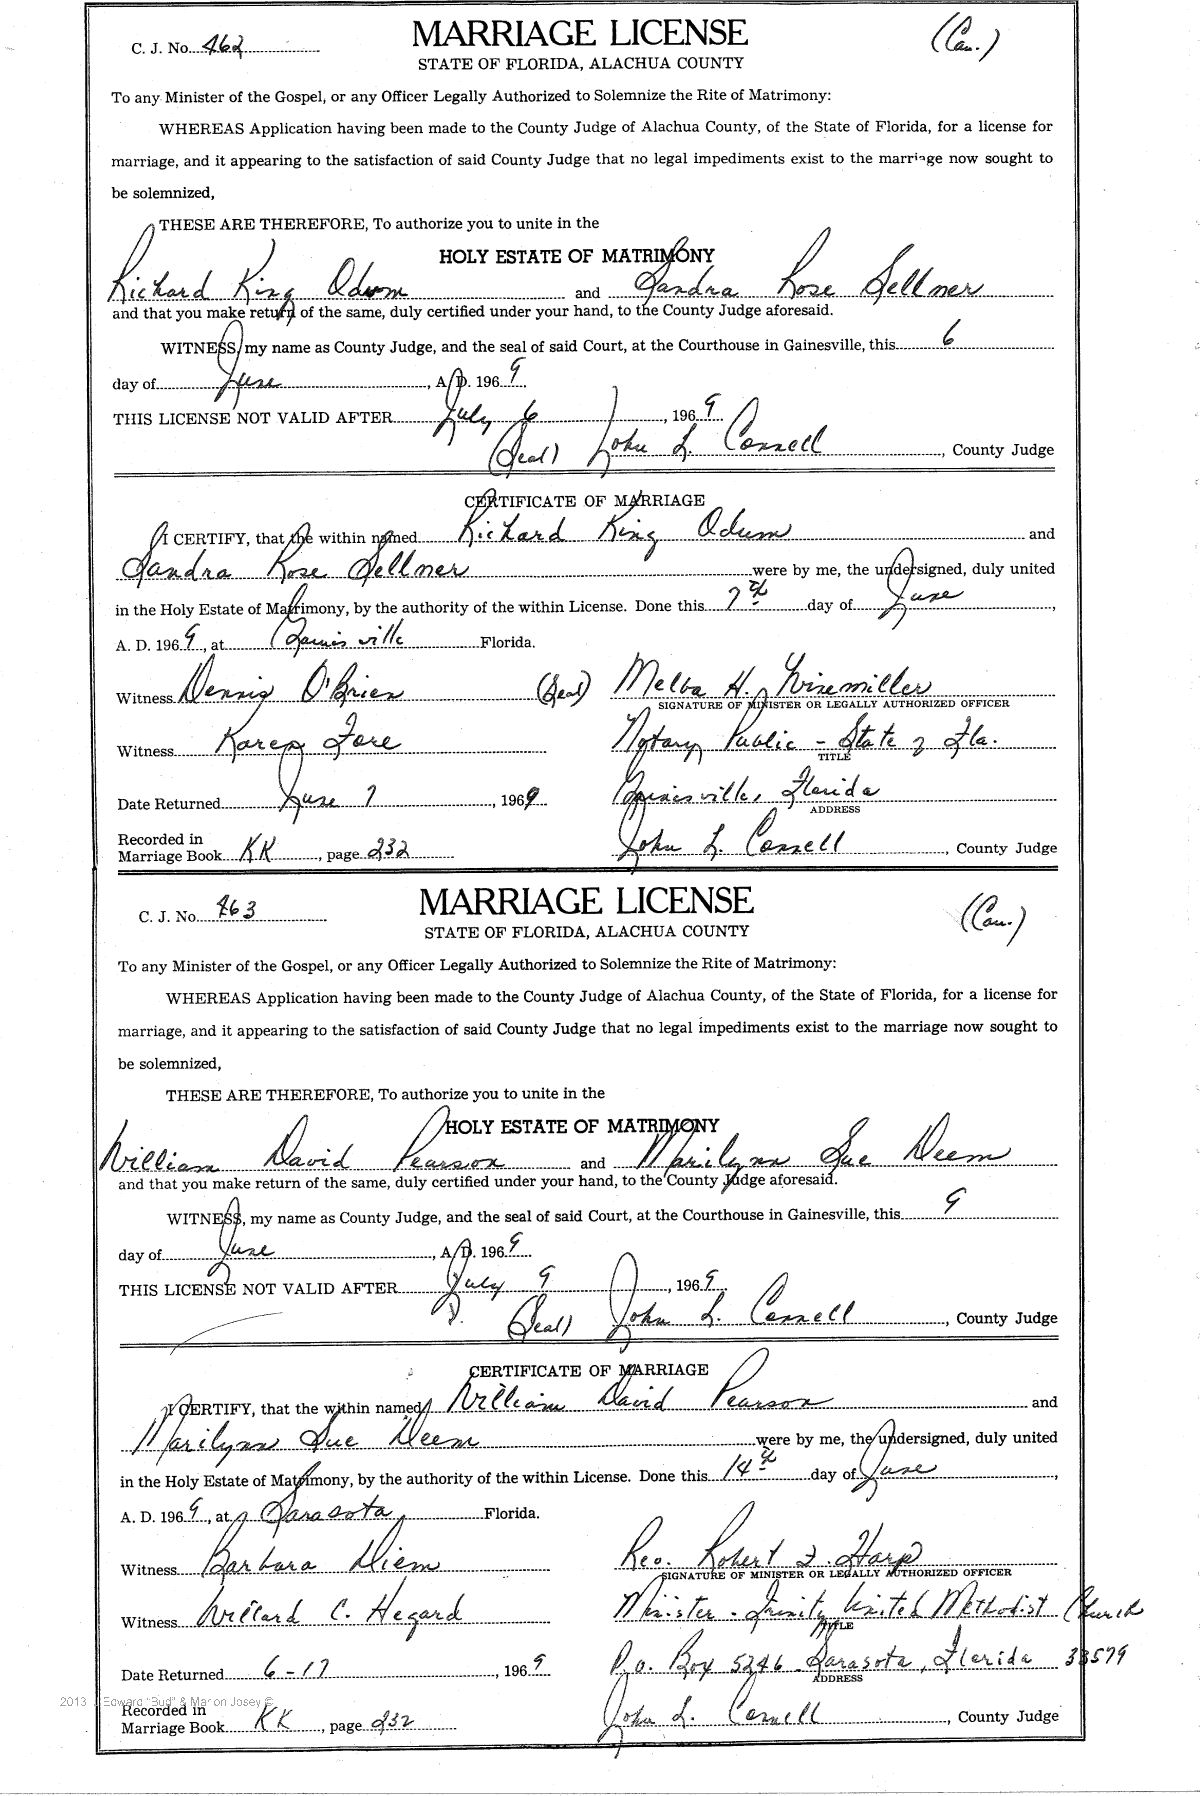 C. J. No. 462
MARRIAGE LICENSE
(Cau.)
STATE OF FLORIDA, ALACHUA COUNTY
To any Minister of the Gospel, or any Officer Legally Authorized to Solemnize the Rite of Matrimony:
WHEREAS Application having been made to the County Judge of Alachua County, of the State of Florida, for a license for
marriage, and it appearing to the satisfaction of said County Judge that no legal impediments exist to the marriage now sought to
be solemnized,
THESE ARE THEREFORE, To authorize you to unite in the
HOLY ESTATE OF MATRIMONY
Richard King Odum and Sandra Rose Sellner
and that you make return of the same, duly certified under your hand, to the County Judge aforesaid.
WITNESS, my name as County Judge, and the seal of said Court, at the Courthouse in Gainesville, this 6
day of June, A. D. 1969
THIS LICENSE NOT VALID AFTER July 6, 1969
(Seal) John L. Connell, County Judge
CERTIFICATE OF MARRIAGE
I CERTIFY, that the within named Richard King Odum and
Sandra Rose Sellner were by me, the undersigned, duly united
in the Holy Estate of Matrimony, by the authority of the within License. Done this 7th day of June,
A. D. 1969, at Gainesville Florida.
Witness Dennis O'Brien (Seal) Melba H. Winemiller
SIGNATURE OF MINISTER OR LEGALLY AUTHORIZED OFFICER
Witness Karen Fore Notary Public - State of Fla.
TITLE
Date Returned June 7, 1969 Gainesville, Florida
ADDRESS
Recorded in
Marriage Book KK, page 232 John L. Connell, County Judge
C. J. No. 463
MARRIAGE LICENSE
(Cau.)
STATE OF FLORIDA, ALACHUA COUNTY
To any Minister of the Gospel, or any Officer Legally Authorized to Solemnize the Rite of Matrimony:
WHEREAS Application having been made to the County Judge of Alachua County, of the State of Florida, for a license for
marriage, and it appearing to the satisfaction of said County Judge that no legal impediments exist to the marriage now sought to
be solemnized,
THESE ARE THEREFORE, To authorize you to unite in the
HOLY ESTATE OF MATRIMONY
William David Pearson and Marilynn Sue Deem
and that you make return of the same, duly certified under your hand, to the County Judge aforesaid.
WITNESS, my name as County Judge, and the seal of said Court, at the Courthouse in Gainesville, this 9
day of June, A. D. 1969
THIS LICENSE NOT VALID AFTER July 9, 1969
(Seal) John L. Connell, County Judge
CERTIFICATE OF MARRIAGE
I CERTIFY, that the within named William David Pearson and
Marilynn Sue Deem were by me, the undersigned, duly united
in the Holy Estate of Matrimony, by the authority of the within License. Done this 14th day of June,
A. D. 1969, at Sarasota, Florida.
Witness Barbara Diem Rev. Robert F. Harp
SIGNATURE OF MINISTER OR LEGALLY AUTHORIZED OFFICER
Witness Willard C. Hegard Minister - Trinity United Methodist Church
TITLE
Date Returned 6-17, 1969 P.O. Box 5246 Sarasota, Florida 33579
ADDRESS
2013 J. Edward "Bud" & Marion Josey ©
Recorded in
Marriage Book KK, page 232 John L. Connell, County Judge